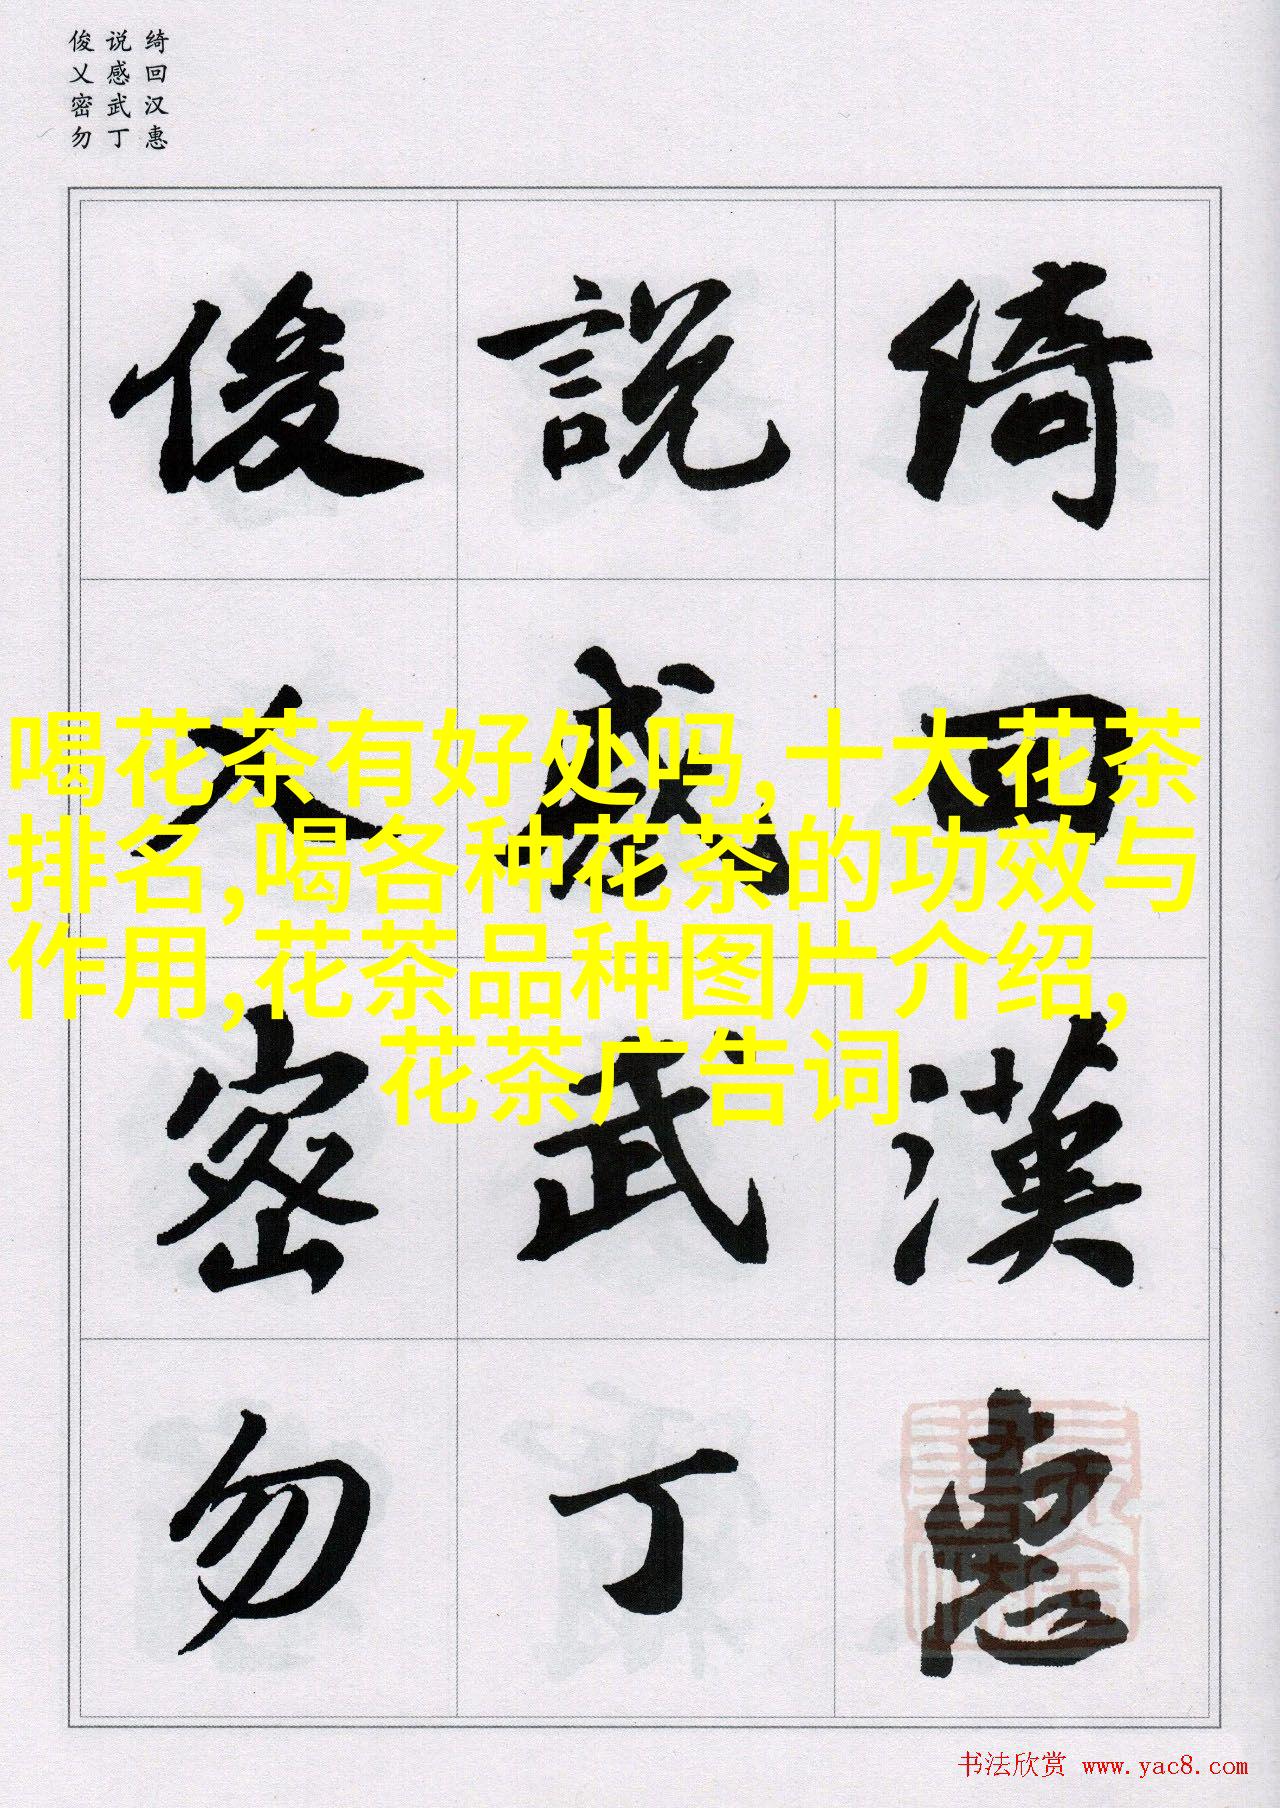 俊说绮
乂感回
密武汉
勿丁惠
俊 說 綺
乂 感 回
喝花茶有好处吗,十大花茶
排名,喝各种花茶的功效与
作用,花茶品种图片介绍,
花茶广告词
密 武 漢
勿 丁 惠
书法欣赏 www.yac8.com